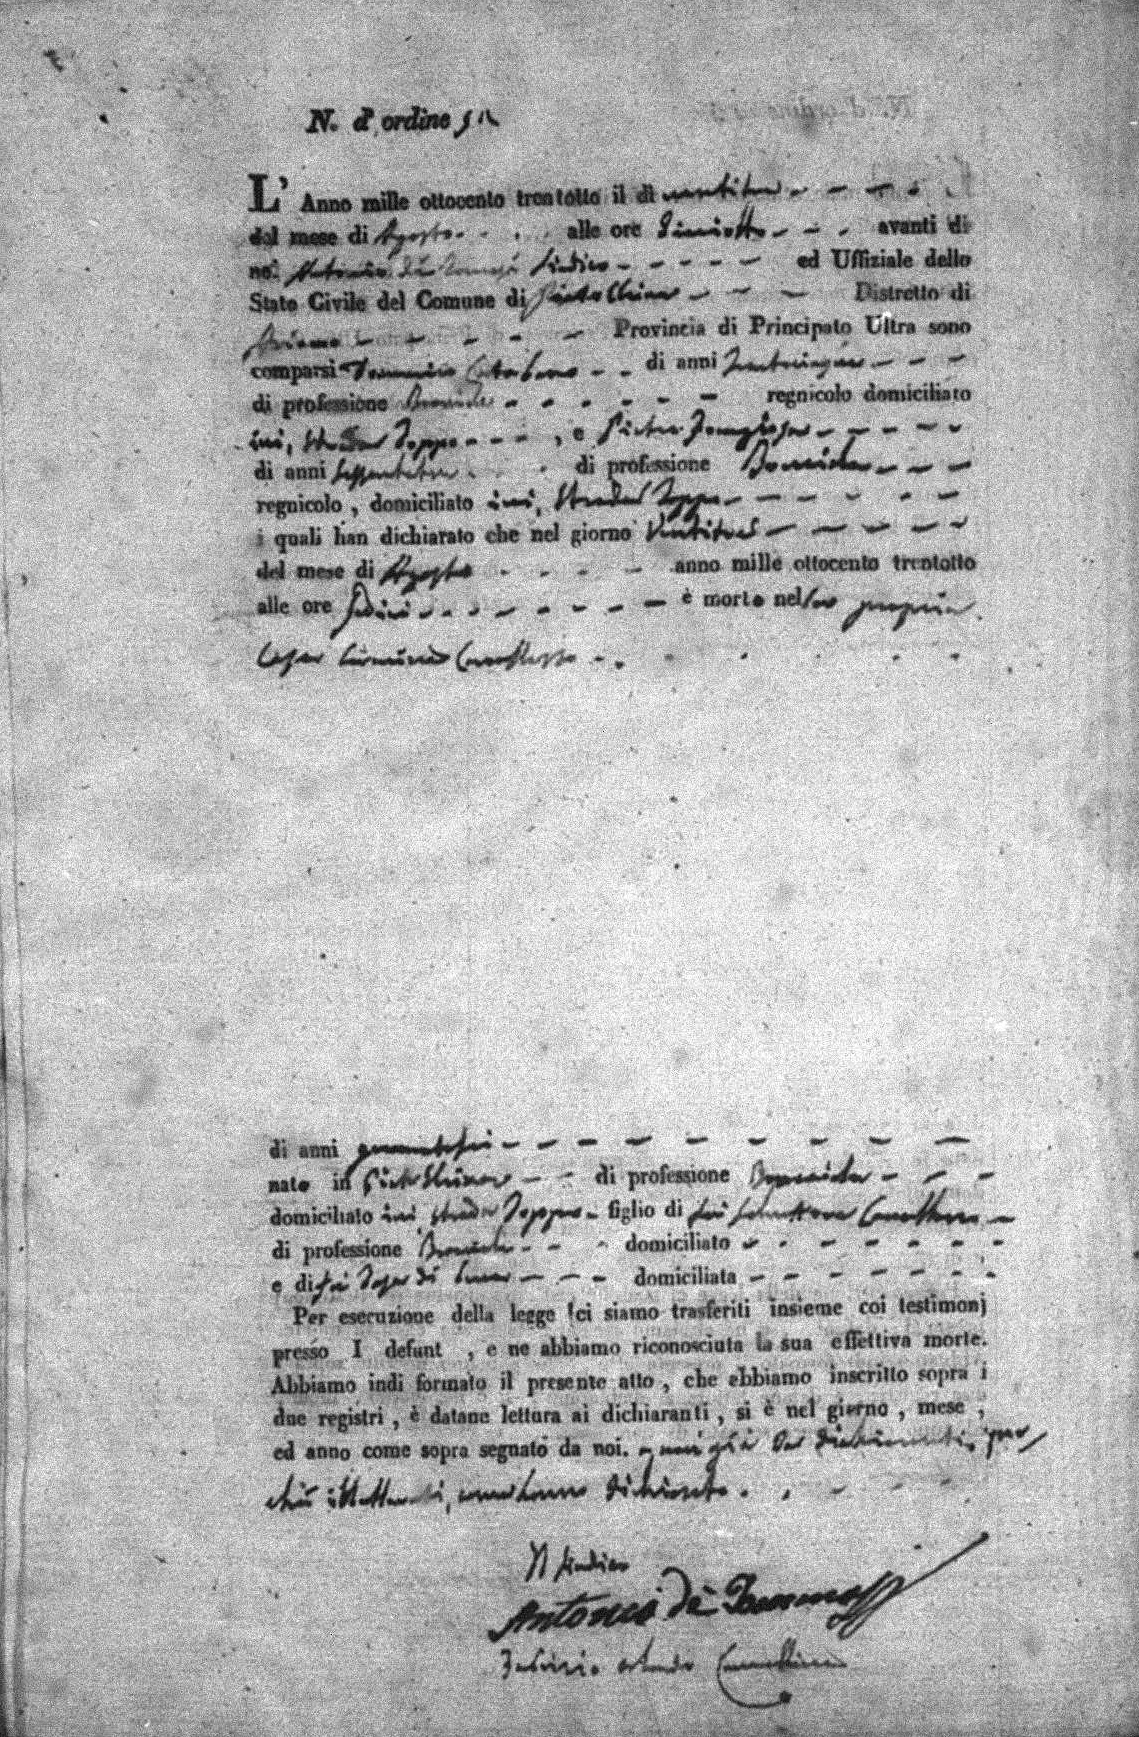 N. d'ordine
L' Anno mille ottocento trentotto il dì ventitre
del mese di Agosto alle ore diciotto avanti di
noi Antonio de Tommasi Sindaco ed Uffiziale dello
Stato Civile del Comune di Distretto di
Ariano Provincia di Principato Ultra sono
comparsi Domenico di anni
di professione Bracciale regnicolo domiciliato
ivi, Strada Toppo , e Pietro
di anni Sessantatre di professione Bracciale
regnicolo , domiciliato ivi, Strada Toppo
i quali han dichiarato che nel giorno Ventitre
del mese di Agosto anno mille ottocento trentotto
alle ore Sedici è morto nel propria
Casa
di anni quarantasei
nato in di professione Bracciale
domiciliato ivi Strada Toppo figlio di fu
di professione Bracciale domiciliato
e di fu domiciliata
Per esecuzione della legge ci siamo trasferiti insieme coi testimonj
presso I defunt , e ne abbiamo riconosciuta la sua effettiva morte.
Abbiamo indi formato il presente atto , che abbiamo inscritto sopra i
due registri , è datane lettura ai dichiaranti , si è nel giorno , mese ,
ed anno come sopra segnato da noi. non già da dichiaranti, per
chè illetterati, come hanno dichiarato.
Il Sindaco
Antonio de Tommasi